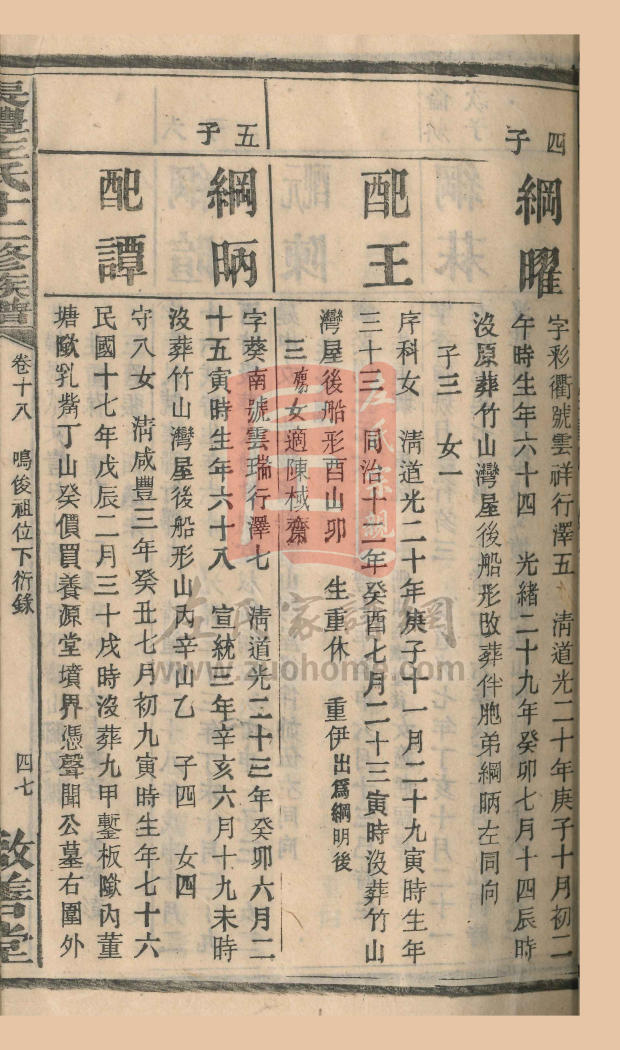 四子
綱曜
字彩衢號雲祥行澤五　清道光二十年庚子十月初二
午時生年六十四　光緒二十九年癸卯七月十四辰時
沒原葬竹山灣屋後船形改葬伴胞弟綱昞左同向
子三　女一
配王
序科女　清道光二十年庚子十一月二十九寅時生年
三十三　同治十二年癸酉七月二十三寅時沒葬竹山
灣屋後船形酉山卯　生重休　重伊出爲綱明後
三殤女適陳棫齋
五子
綱昞
字葵南號雲瑞行澤七　清道光二十三年癸卯六月二
十五寅時生年六十八　宣統三年辛亥六月十九未時
沒葬竹山灣屋後船形山丙辛山乙　子四　女四
配譚
守入女　清咸豐三年癸丑七月初九寅時生年七十六
民國十七年戊辰二月三十戌時沒葬九甲塹板隞內董
塘隞乳嘴丁山癸價買養源堂墳界憑聲聞公墓右圍外
左氏十二修族譜
卷十八　鳴俊祖位下衍錄
四七
敦善堂
左氏宗親
左氏家譜網
www.zuohome.com